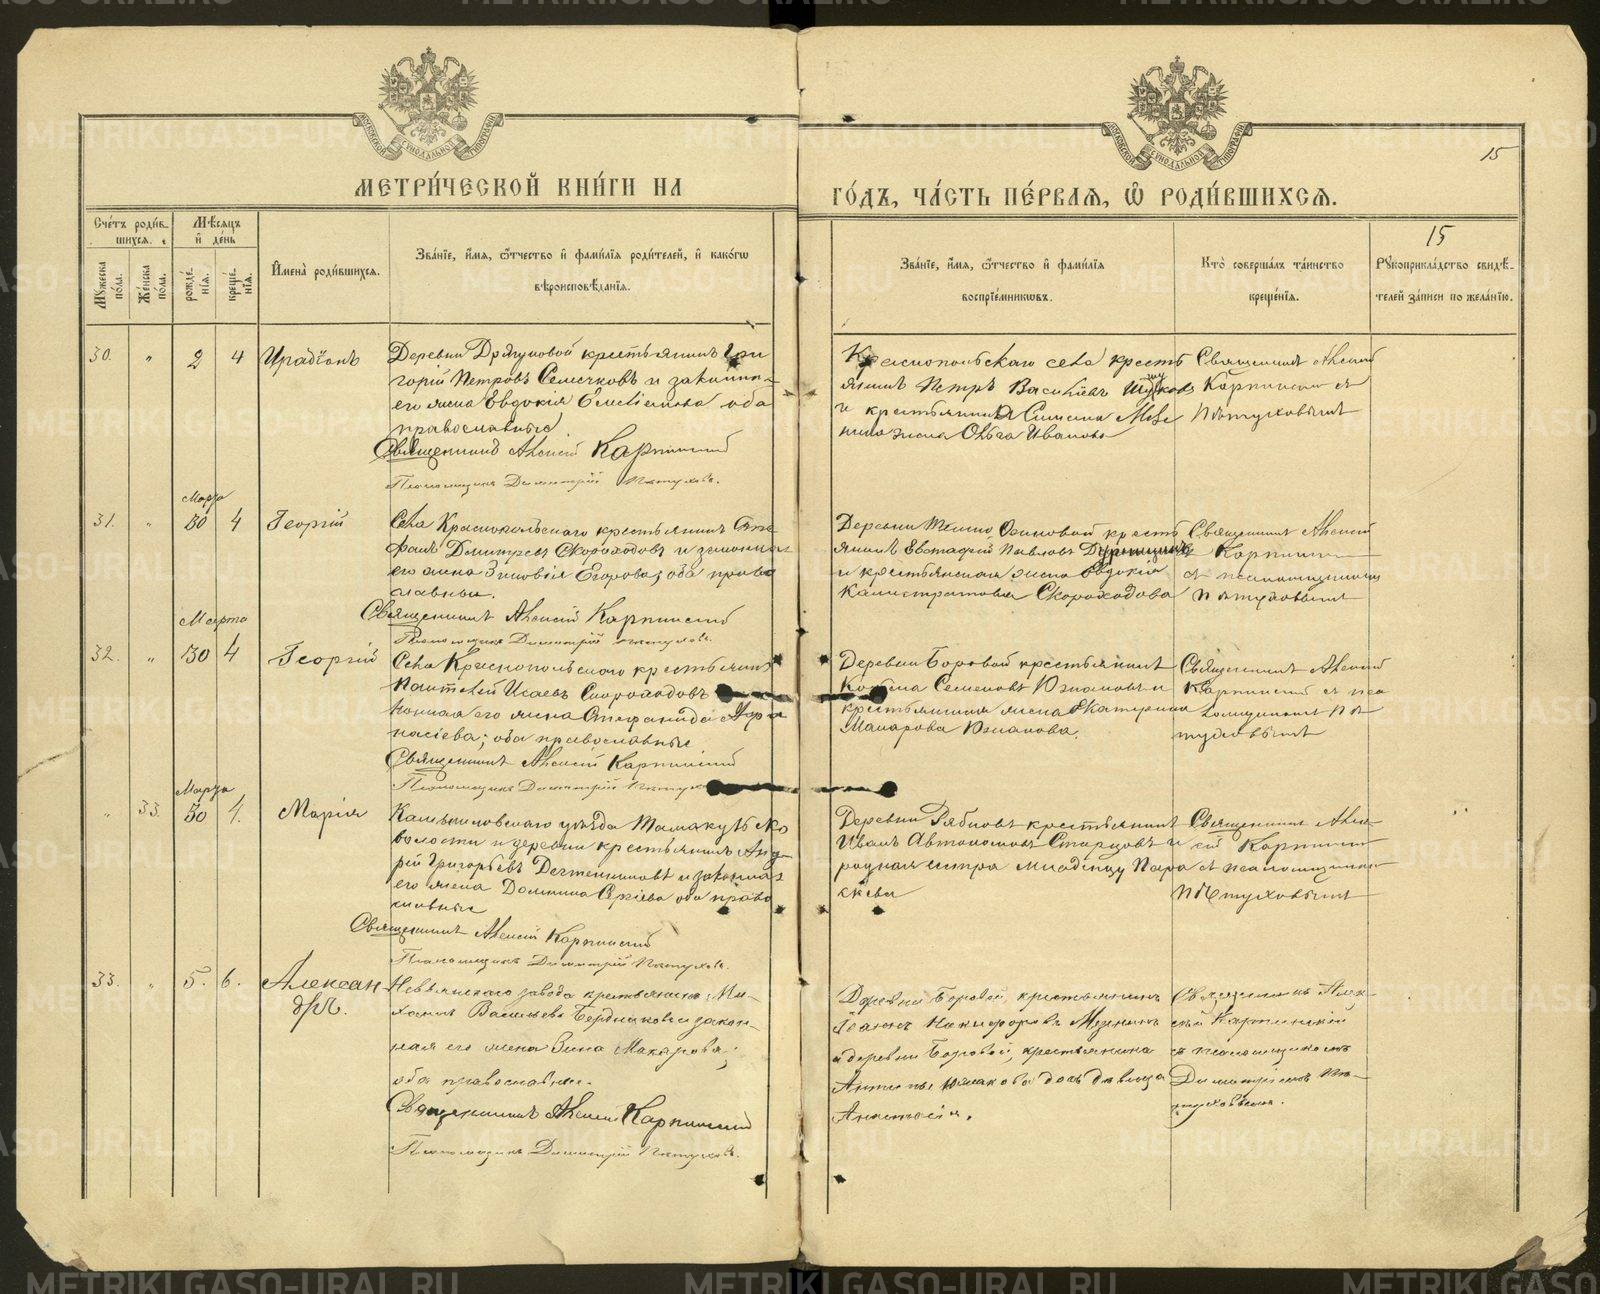 МЕТРИ́ЧЕСКОЙ КНИ́ГИ НА
ГО́ДЪ, ЧА́СТЬ ПЕ́РВАЯ, Ѡ҆ РОДИ́ВШИХСЯ.
15
Сче́тъ роди́в-
шихся.
Мѣ́сяцъ
и҆ де́нь
Мꙋ́жеска по́ла.
Же́нска по́ла.
рожде́нїя.
креще́нїя.
И҆мена̀ роди́вшихся.
Зва́нїе, и҆́мя, ѻ҆́тчество и҆ фами́лїя роди́телей, и҆ како́гѡ
вѣроисповѣ́данїя.
Зва́нїе, и҆́мя, ѻ҆́тчество и҆ фами́лїя
воспрїе́мникѡвъ.
Кто̀ соверша́лъ та́инство
креще́нїя.
15
Рꙋкоприкла́дство свидѣ́-
телей за́писи по жела́нїю.
30. " 2 4
Деревни крестьянинъ Гри
горій Петровъ Селечковъ и законн-
его жена Евдокия оба
православные
Священникъ Алексій Карпинский
Псаломщикъ Димитрій Пѣтуховъ.
Краснопольскаго села кресть
янинъ Петръ Васильевъ
и крестьянина
жена Ольга Иванова
Священникъ Алексій
Карпинский съ
Пѣтуховымъ
Марта
31. " 30 4 Георгій
Села Краснопольскаго крестьянинъ Сте
фанъ Дмитревъ Скороходовъ и законная
его жена Зиновія Егорова; оба право
славные.
Священникъ Алексій Карпинский
Псаломщикъ Димитрій Пѣтуховъ.
Деревни Осиновой кресть
янинъ Евстафій Павловъ
и крестьянская жена Евдокія
Калистратова Скороходова
Священникъ Алексій
Карпинский
съ псаломщикомъ
Пѣтуховымъ
Марта
32. " 30 4 Георгій
Села Краснопольскаго крестьянинъ
Пантелей Исаевъ Скороходовъ
конная его жена Стефанида Афа
насіева; оба православные
Священникъ Алексій Карпинский
Псаломщикъ Димитрій Пѣтуховъ
Деревни Боровой крестьянинъ
Козьма Семеновъ Южаковъ и
крестьянина жена Екатерина
Макарова Южакова.
Священникъ Алексій
Карпинский съ пса
ломщикомъ Пѣ
туховымъ
Марта
" 33. 30 4. Марія
Камышловскаго уѣзда
волости и деревни крестьянинъ Анд-
рій Григорьевъ и законная
его жена Домнина Сергіева оба право
славные
Священникъ Алексій Карпинский
Псаломщикъ Димитрій Пѣтуховъ.
Деревни Рябковъ крестьянинъ
Иванъ Автономовъ Старцовъ и
родная сестра младенцу Пара
скева
Священникъ Алек-
сій Карпинский
съ псаломщикомъ
Пѣтуховымъ
33. " 5. 6. Алексан-
дръ.
Невьянскаго завода крестьянинъ Ми-
хаилъ Васильевъ Бердниковъ и закон-
ная его жена Зина Макарова;
оба православные.
Священникъ Алексій Карпинский
Псаломщикъ Димитрій Пѣтуховъ.
Деревни Боровой, крестьянинъ
Іоаннъ Никифоровъ
и деревни Боровой, крестьянина
Антипы Южакова дочь дѣвица
Анастасія.
Священникъ Алек-
сій Карпинскій
съ псаломщикомъ
Димитріемъ Пѣ-
туховымъ.